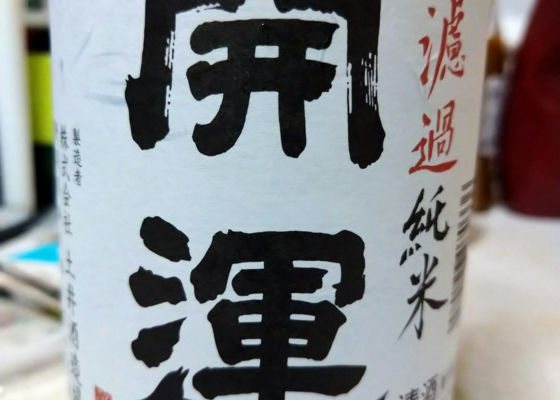 濾過純米
清酒
開運
製造者
株式会社土井酒造場